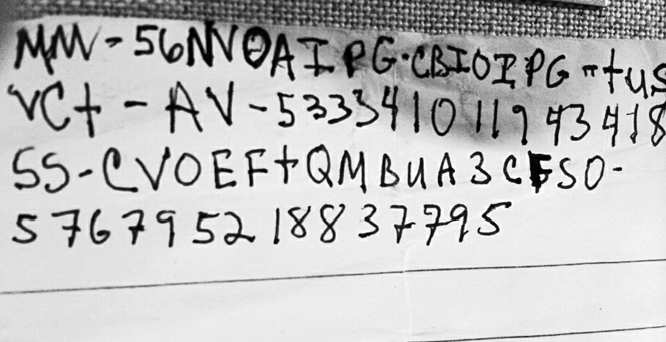 MW-56NVOAIPG-CBIOIPG-tus
VCt-AV-533341011943418
SS-CVOEFtQMBUA3CFSO-
576795218837795